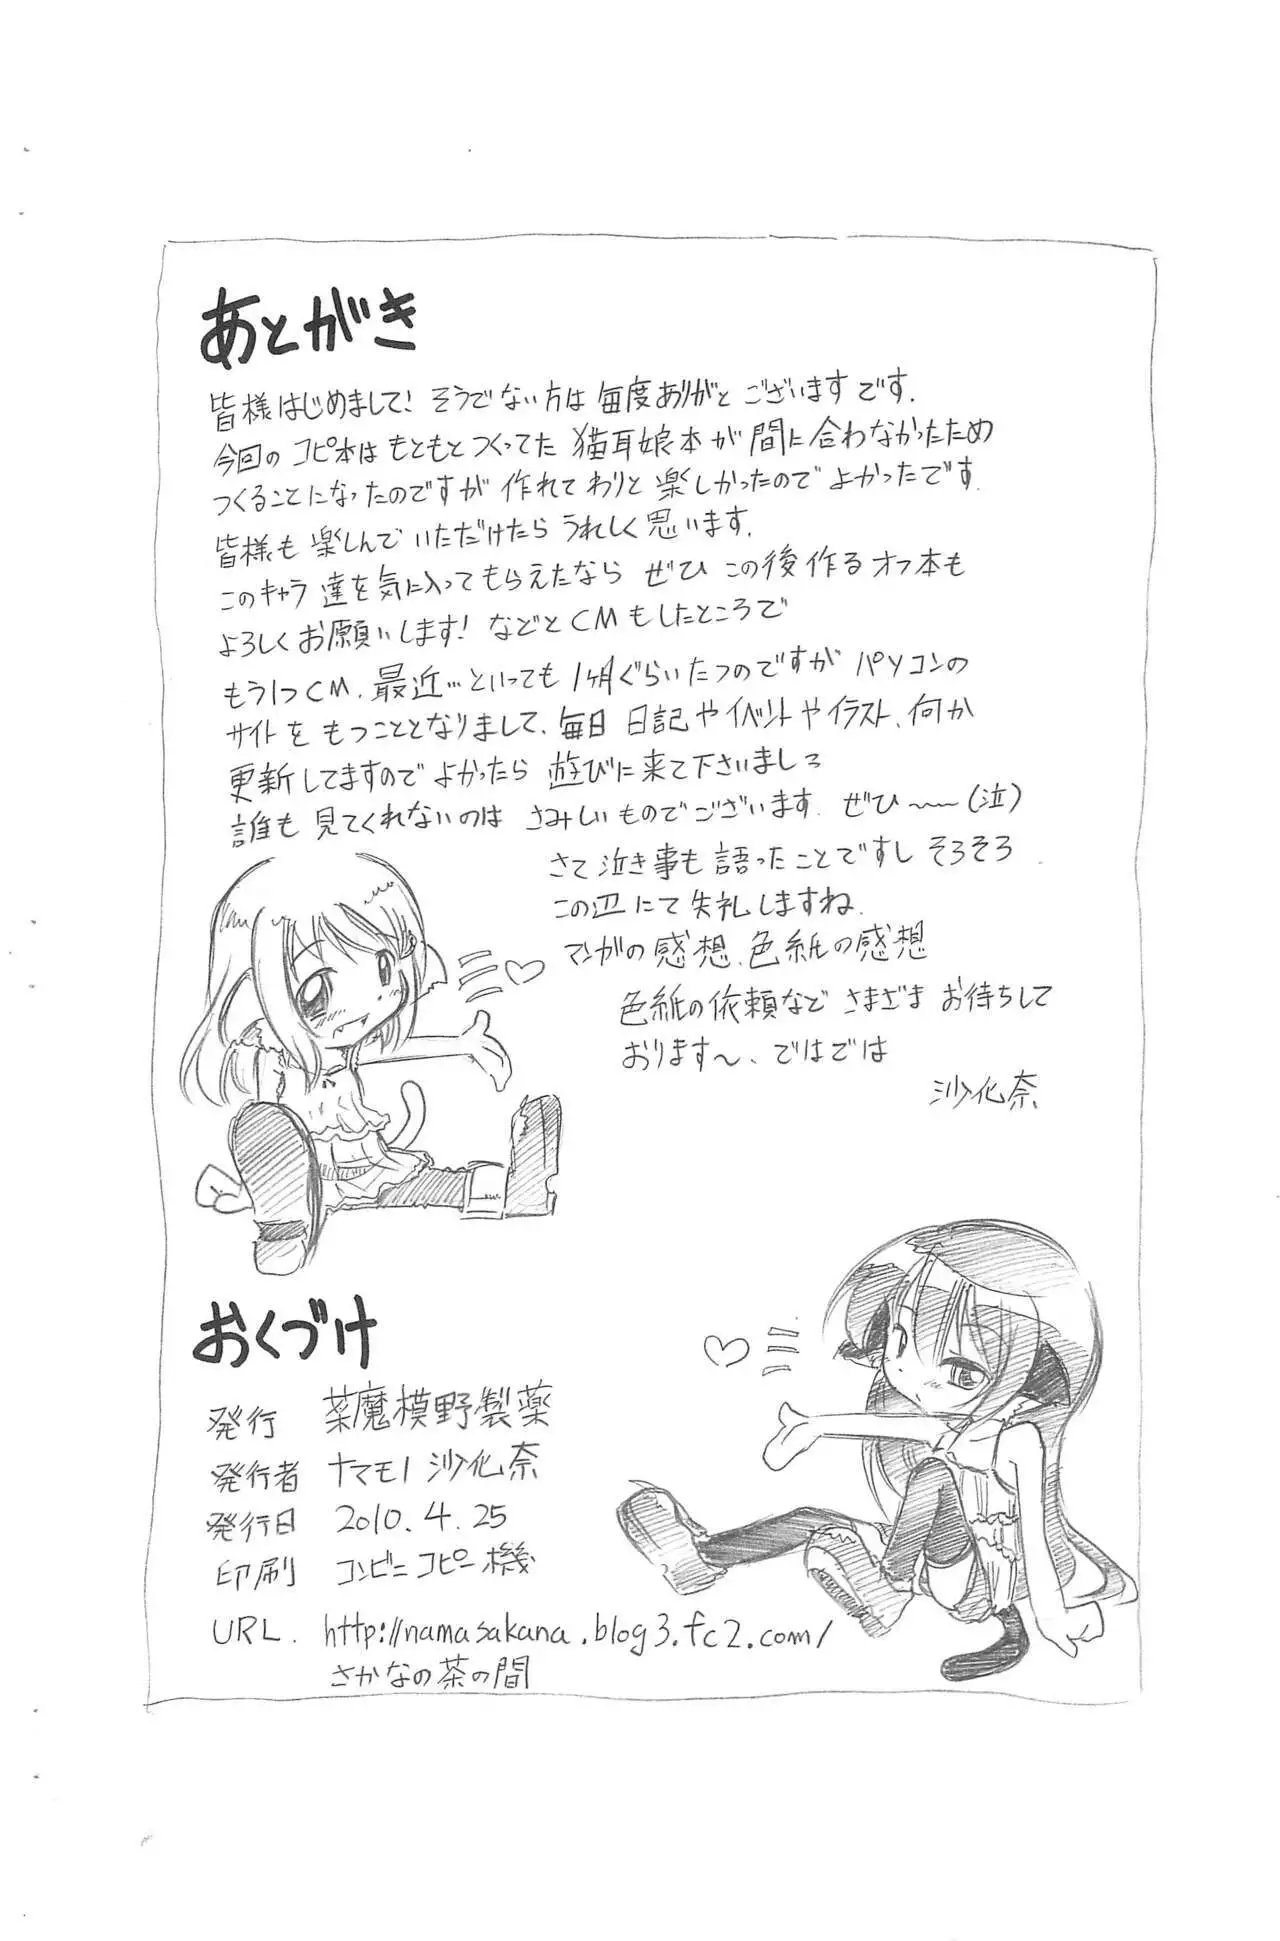 あとがき
皆様はじめまして! そうでない方は 毎度ありがとございますです.
今回の コピ本は もともと つくってた 猫耳娘本が 間に合わなかったため
つくることになったのですが 作れて わりと 楽しかったので よかったです.
皆様も 楽しんで いただけたら うれしく思います.
このキャラ達を気に入ってもらえたなら ぜひ この後作るオフ本も
よろしくお願いします! などと CMもしたところで
もう1つCM. 最近…といっても1ヶ月ぐらいたつのですが パソコンの
サイトを もつこととなりまして、毎日 日記やイベントやイラスト、何か
更新してますので よかったら 遊びに来て下さいましろ
誰も 見てくれないのは さみしいものでございます. ぜひ〜〜(泣)
さて 泣き事も 語ったことですし そろそろ
この辺にて 失礼しますね.
マンガの感想、色紙の感想
色紙の依頼など さまざま お待ちして
おります〜、ではでは
沙化奈
♡
おくづけ
♡
発行 薬魔模野製薬
発行者 ナマモノ 沙化奈
発行日 2010.4.25
印刷 コンビニ コピー機
URL. http://namasakana.blog3.fc2.com/
さかなの茶の間